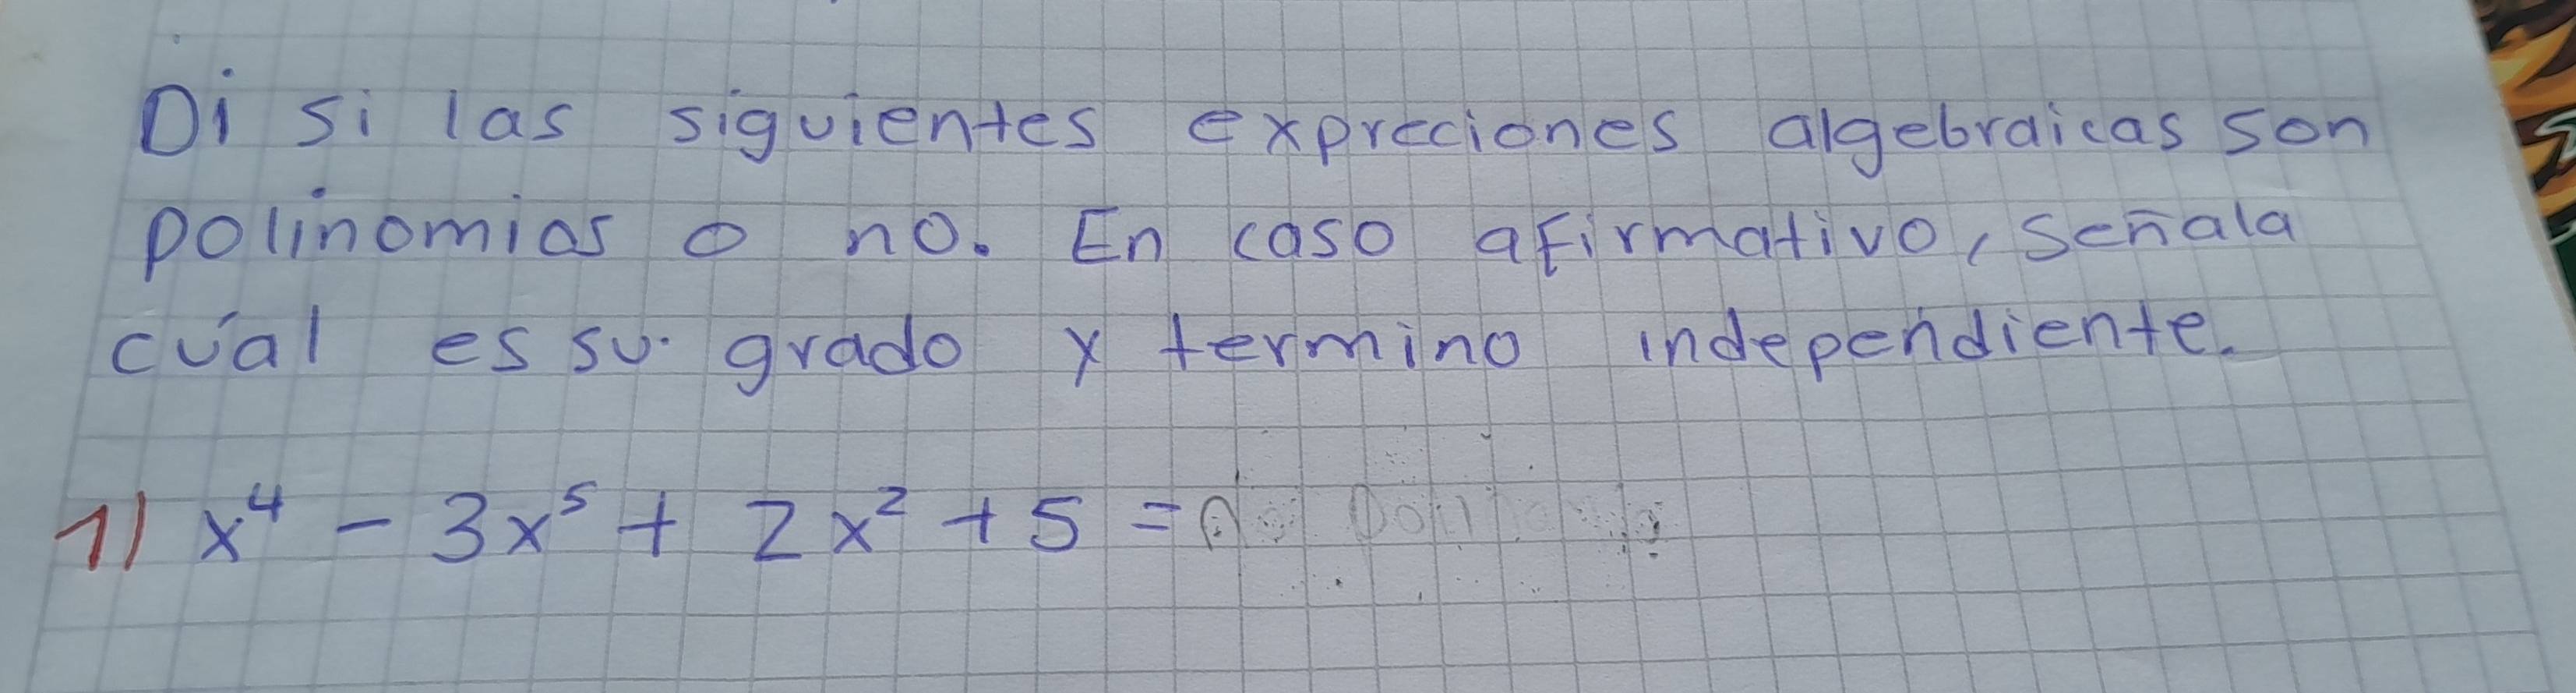 Di si las siguientes expreciones algebraicas son
polinomios o no. En caso afirmativo, señala
cúal es su grado y termino independiente.
1) x⁴ - 3x⁵ + 2x² + 5 =